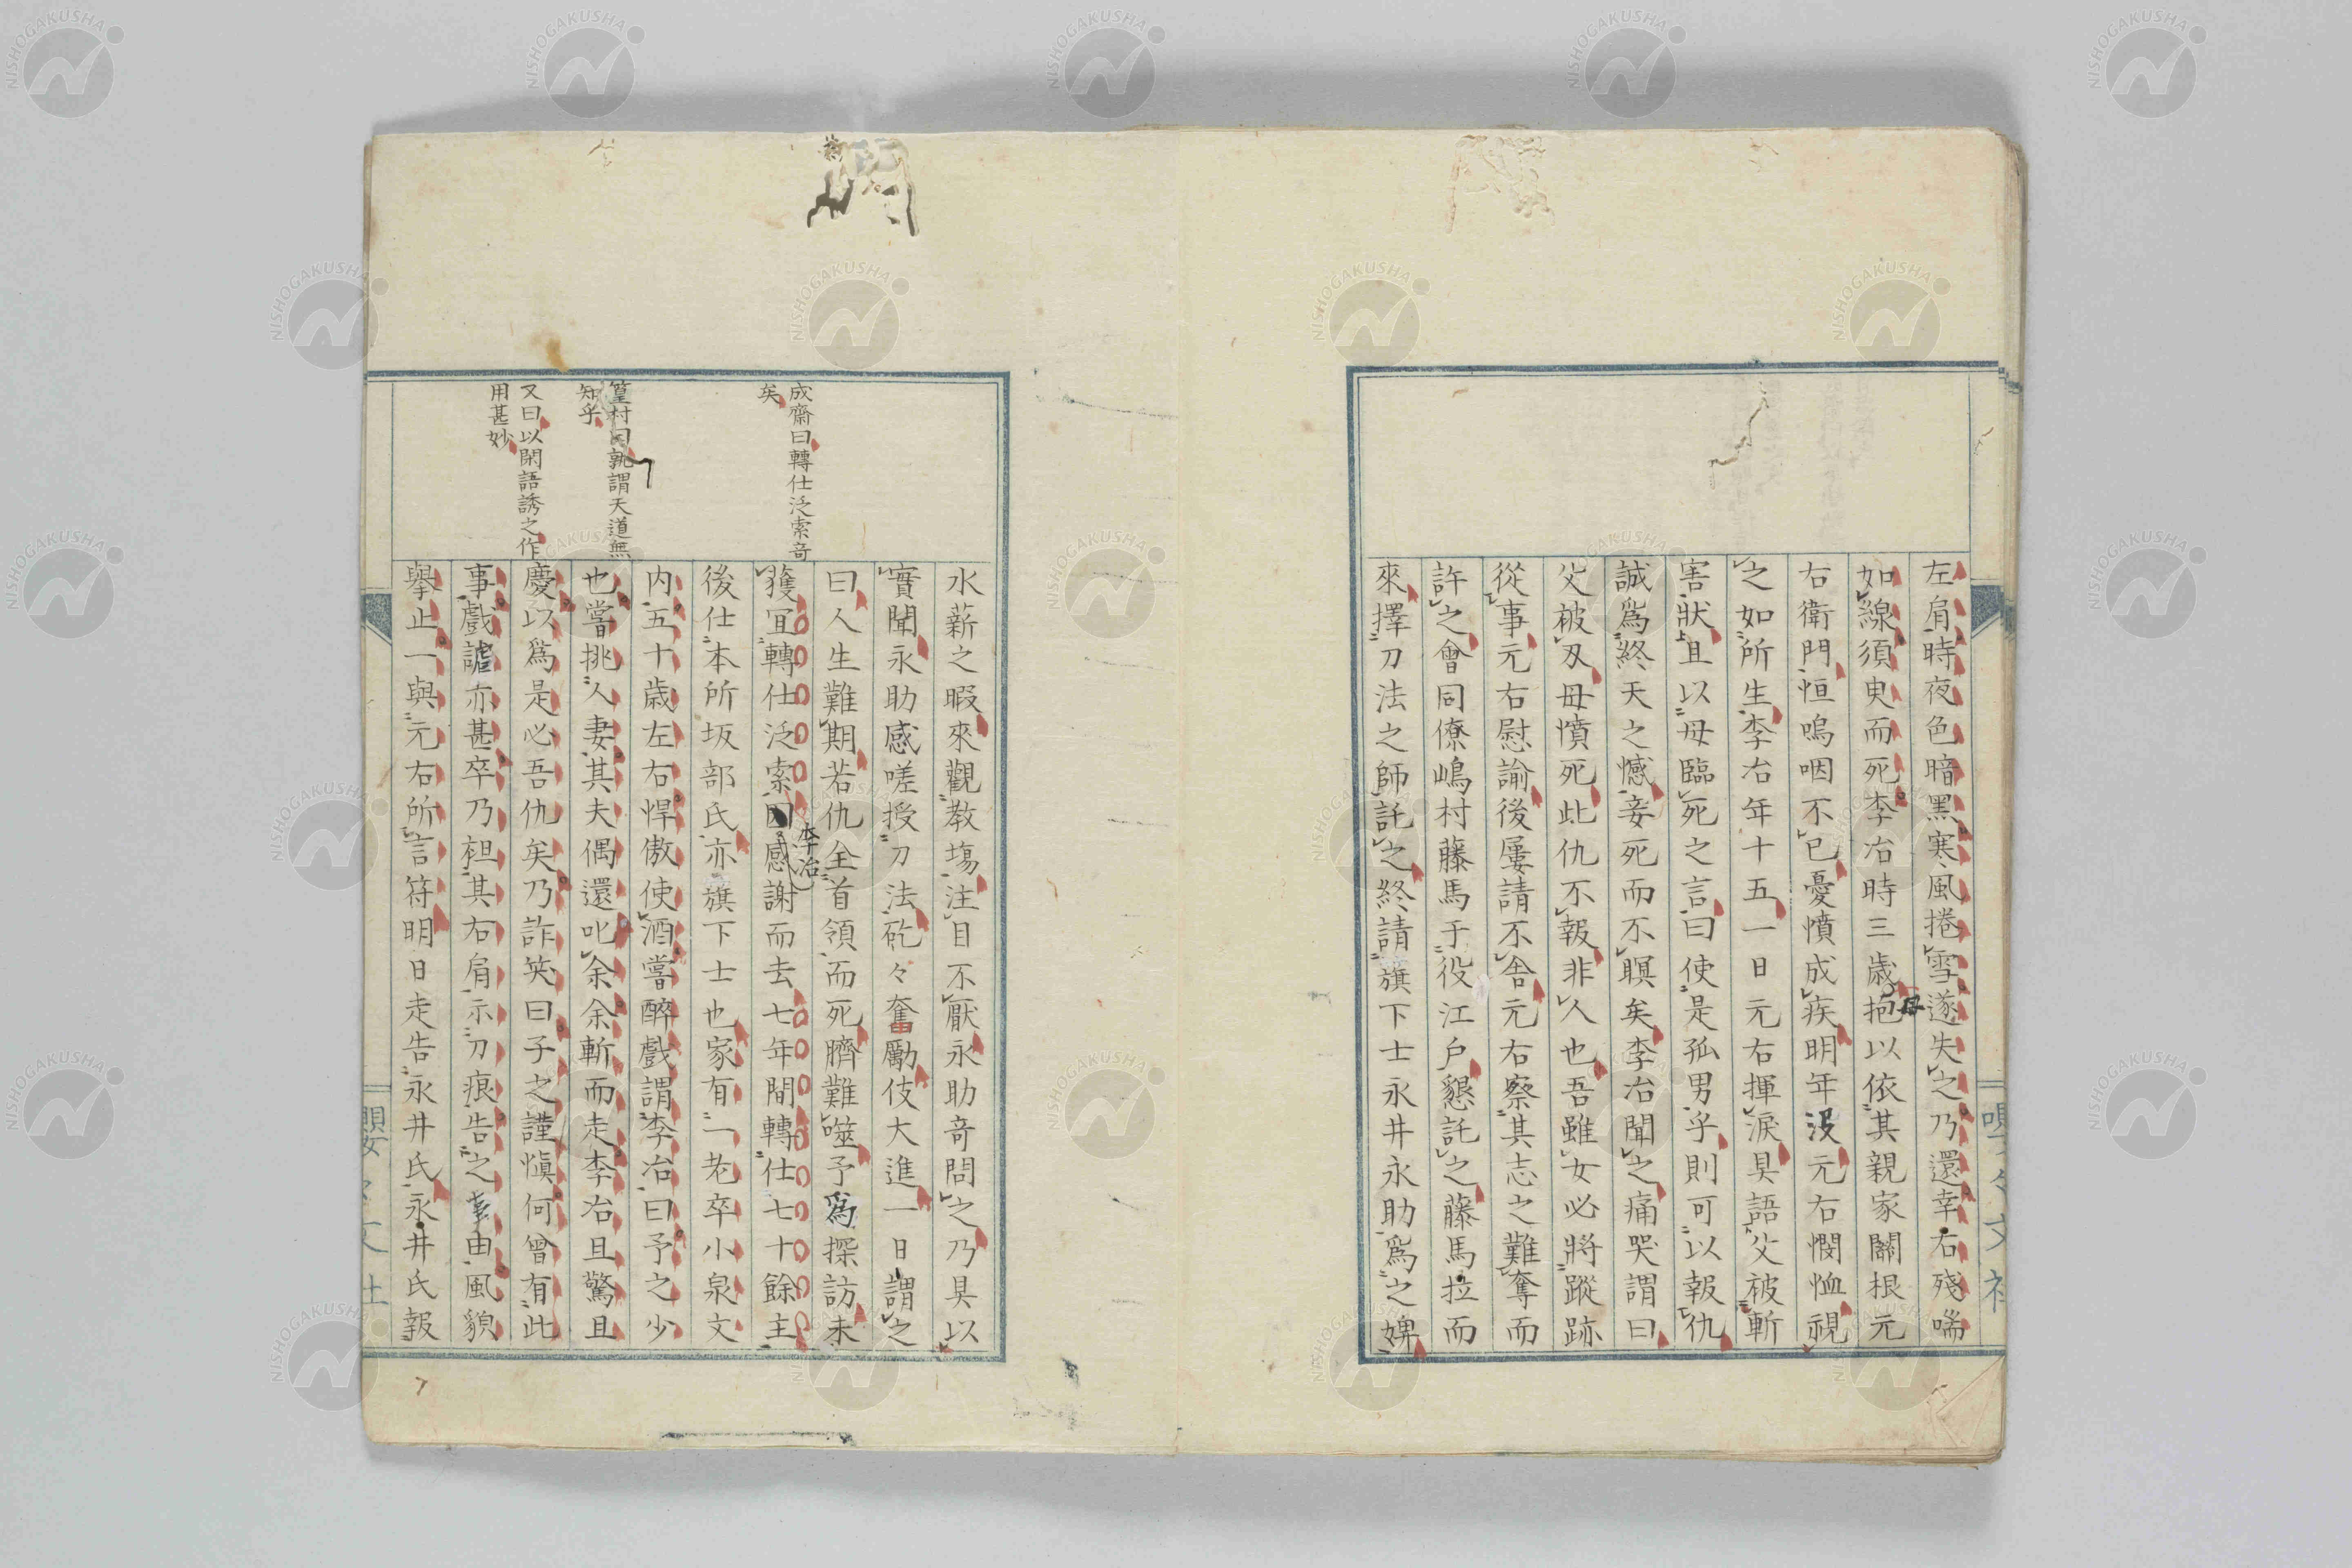 左肩時夜色暗黑寒風捲雪遂失之乃還幸右殘喘
如線須臾而死李冶時三歲母抱以依其親家關根元
右衛門恒嗚咽不已憂憤成疾明年沒元右憫恤視
之如所生李冶年十五一日元右揮淚具語父被斬
害狀且以母臨死之言曰使是孤男乎則可以報仇
誠爲終天之憾妾死而不瞑矣李冶聞之痛哭謂曰
父被刃母憤死此仇不報非人也吾雖女必將蹤跡
從事元右慰諭後屢請不舍元右察其志之難奪而
許之會同僚嶋村藤馬于役江戶懇託之藤馬拉而
來擇刀法之師託之終請旗下士永井永助爲之婢
水薪之暇來觀教塲注目不厭永助奇問之乃具以
實聞永助感嗟授刀法矻々奮勵伎大進一日謂之
曰人生難期若仇全首領而死臍難噬予爲探訪未
獲宜轉仕泛索李冶感謝而去七年間轉仕七十餘主
後仕本所坂部氏亦旗下士也家有一老卒小泉文
内五十歲左右悍傲使酒嘗醉戲謂李冶曰予之少
也嘗挑人妻其夫偶還叱余余斬而走李冶且驚且
慶以爲是必吾仇矣乃詐笑曰子之謹愼何曾有此
事戲謔亦甚卒乃袒其右肩示刀痕告之事由風貌
擧止一與元右所言符明日走告永井氏永井氏報
成齋曰轉仕泛索奇
矣
篁村曰孰謂天道無
知乎
又曰以閑語誘之作
用甚妙
NISHOGAKUSHA